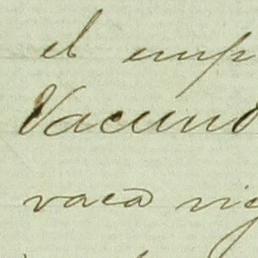 el emp
Vacuno
vaca vig